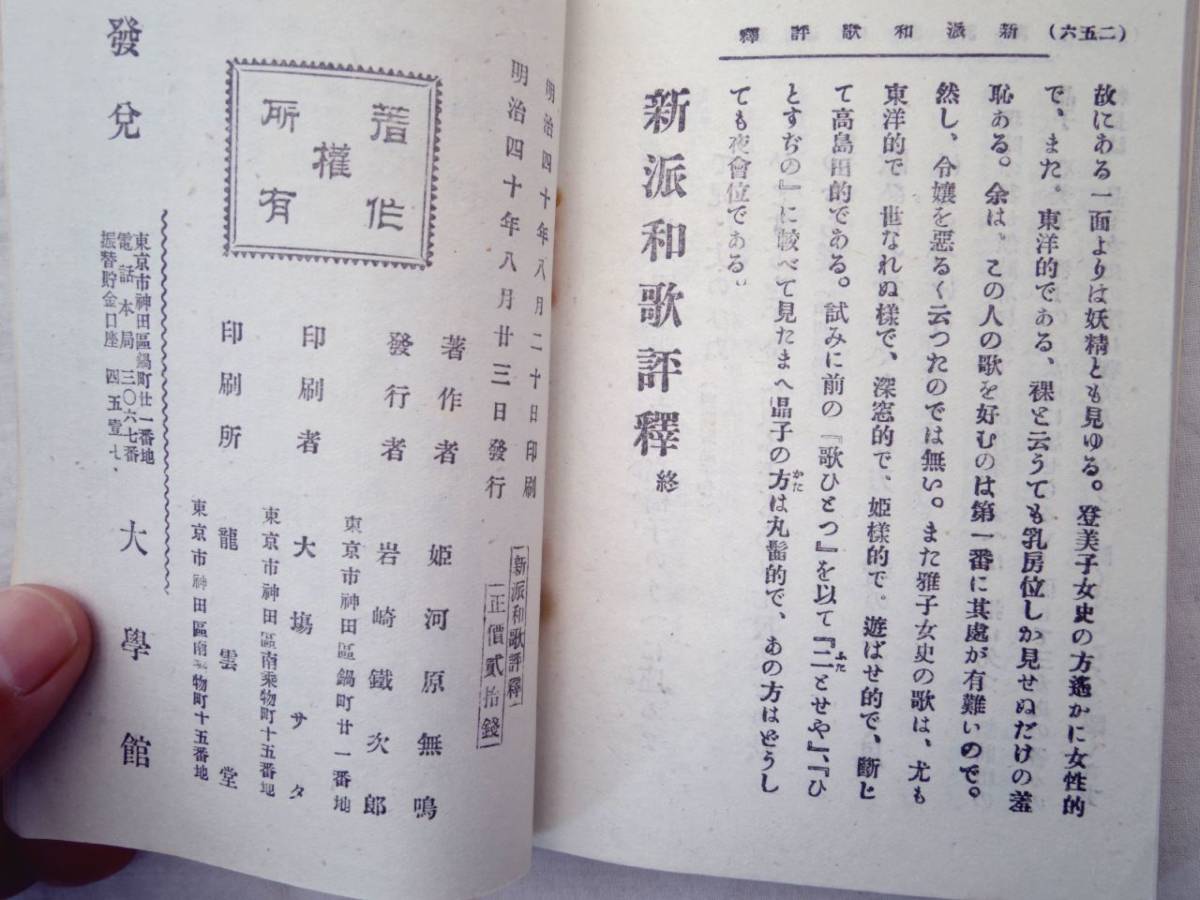 (二五六) 新派和歌評釋
故にある一面よりは妖精とも見ゆる。登美子女史の方遙かに女性的
で、また。東洋的である、裸と云うても乳房位しか見せぬだけの羞
恥ある。余は、この人の歌を好むのは第一番に其處が有難いので。
然し、令孃を惡るく云つたのでは無い。また雅子女史の歌は、尤も
東洋的で 世なれぬ樣で、深窓的で、姫樣的で。遊ばせ的で、斷じ
て高島田的である。試みに前の『歌ひとつ』を以て『二とせや』、『ひ
とすぢの』に較べて見たまへ晶子の方は丸髷的で、あの方はどうし
ても夜會位である。
ふた
かた
新派和歌評釋 終
明治四十年八月二十日印刷
明治四十年八月廿三日發行
新派和歌評釋
正價貳拾錢
著作權所有
著作者 姫河原無鳴
東京市神田區鍋町廿一番地
發行者 岩崎鐵次郎
東京市神田區南乘物町十五番地
印刷者 大塲サタ
東京市神田區南乘物町十五番地
印刷所 龍雲堂
發兌 大學館
東京市神田區鍋町廿一番地
電話本局 三〇六七番
振替貯金口座 四五壹七